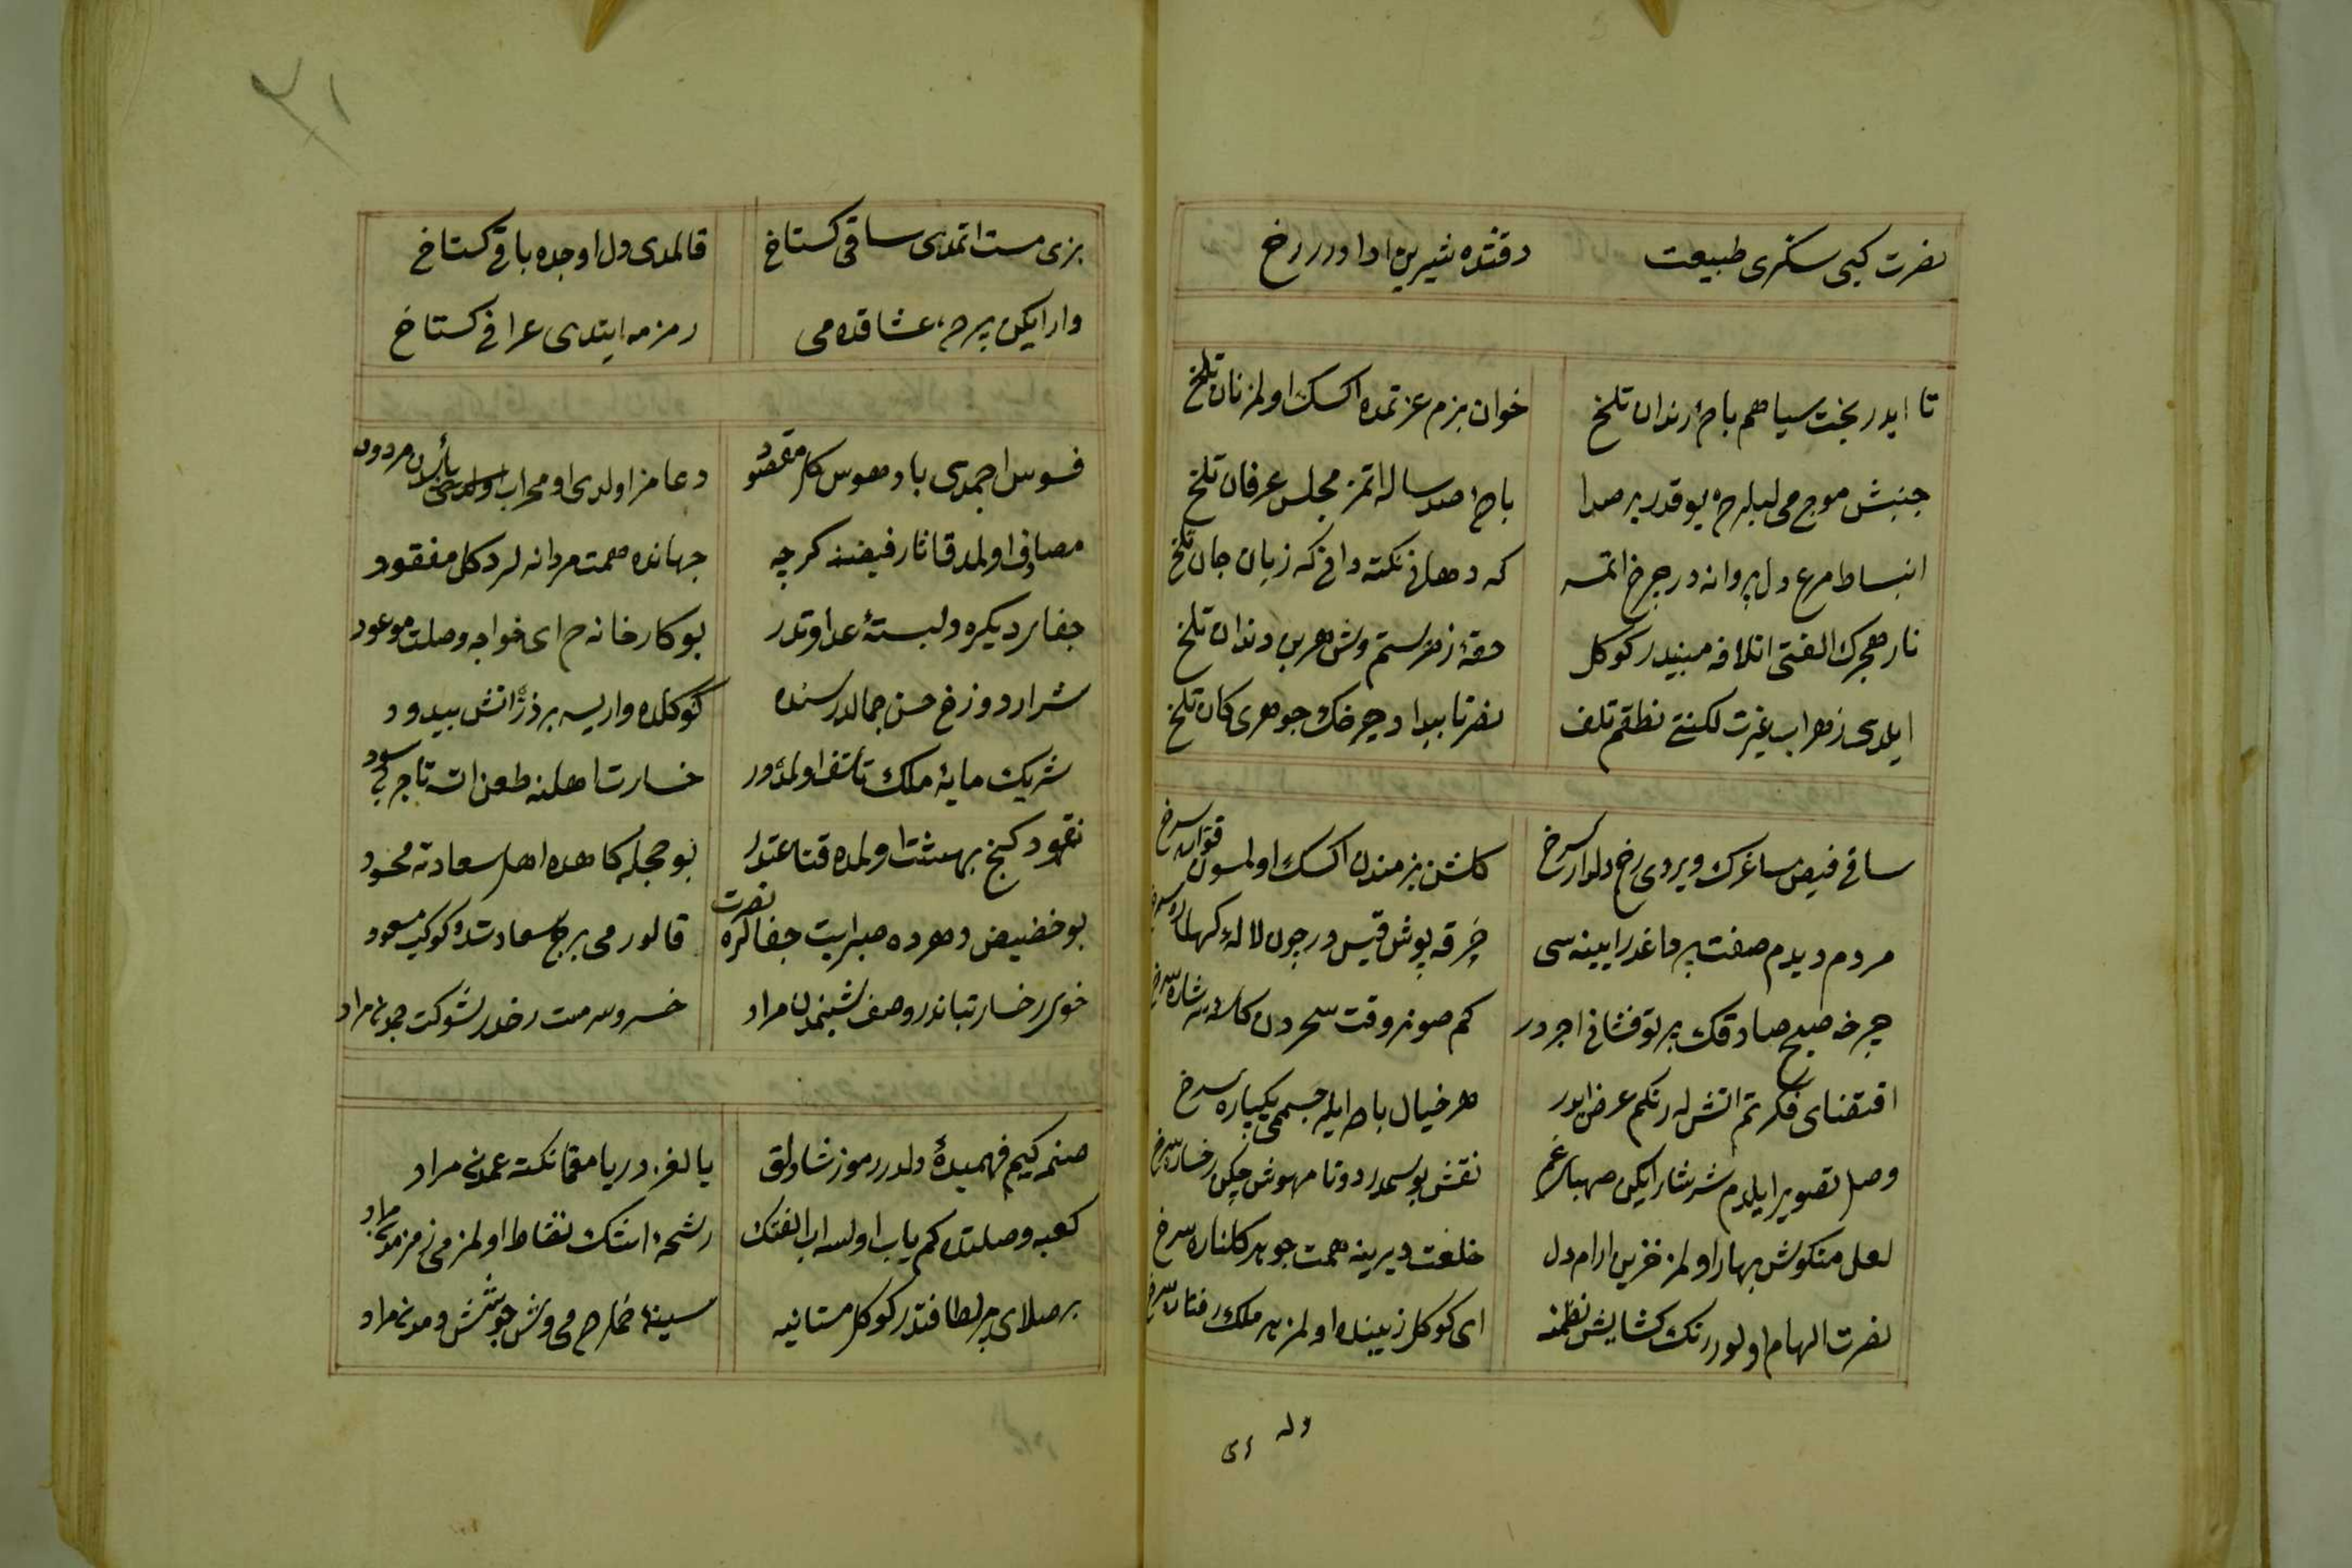 نصرت کبی سکری طبیعت دقتده شیرین ادا اودر رخ
تا ایدر بخت سیاهم بادهٔ رندان تلخ خوان بزم عزتمده اکسک اولمز نان تلخ
جنبش موج می لبلرده یوقدر بر صدا بادهٔ صد ساله اتمز مجلس عرفان تلخ
انبساط مرغ دل پروانه در چرخ اتمه که دهانی نکته دانی که زبان جان تلخ
نار هجرک الفتی اتلافه مبنیدر کوکل حقهٔ زهر ستم وش هر بن دندان تلخ
ایلدی زهراب غیرت لکنتی نطقم تلف نصرتا بیداد چرخک جوهری کان تلخ
ساقی فیض ساغرک ویردی رخ دلدار سرخ کلشن بزمندن اکسک اولمسون سرخ
مردم دیدم صفت پر داغدر ایینه سی خرقه پوش قیس در چون لالهٔ کهسار سرخ
چرخه صبح صادقک پرتو فشانی اجر در کم صونر وقت سحردن سرشار سرخ
اقتضای فکرتم اتش له رنکم عرض ایدر هر خیال باده ایله جسممی یکپاره سرخ
وصل تصویر ایلدم سرشار ایکن صهبای غم نقش بوسمدر دوتا مهوش چکن رخسار سرخ
لعل میکونش بهار اولمز خزین ارام دل خلعت دیرینه همت جوید کلناره سرخ
نصرت الهام اولور رنک کشایش نظمنه ای کوکل زیبنده اولمز بر ملک رفتار سرخ
وله
ای
٣١
بزی مست اتمدی ساقی کستاخ قالمدی دل اوجده باقی کستاخ
وار ایکن پرده عشاقده می رمزمه ایتدی عراقی کستاخ
فسوس اچمدی باد هوس کل مقصود دعامز اولدی او محراب مردود
مصادفی اولمدق اثار فیضنه کرچه جهانده همت مردانه لر دکل مفقود
جفای دیکره دلبستهٔ عداوتدر بو کارخانه ده ای خواجه وصلت موعود
شرار دوزخ حسن جمالدر سنده کوکلده واریسه بر ذره اتش بیدود
شریک مایهٔ ملک تأسف اولمدر خسارت اهلنه طعن اته تاجر بی سود
نقود کنج بهشت اولمده قناعتدر بو حجله کاهده اهل سعادته محسود
بو حضیض دهرده صبر ایت جفالره نصرت قالور می برج سعادتده کوکب مسعود
خوی رخسار تباندر وصف شبنمدن مراد خسرو سرمست رخدر شوکت جمدن مراد
صنمه کیم فهمیدهٔ دلدر رموز شادلق یا لغز دریا معما نکته عمدن مراد
کعبه وصلتده کم یاب اولسه اب الفتک رشحهٔ اشک نشاط اولمز می زمزمدن مراد
بر صلای پر لطافتدر کوکل مستانیه سینهٔ خمارده می وش جوشش دمدن مراد